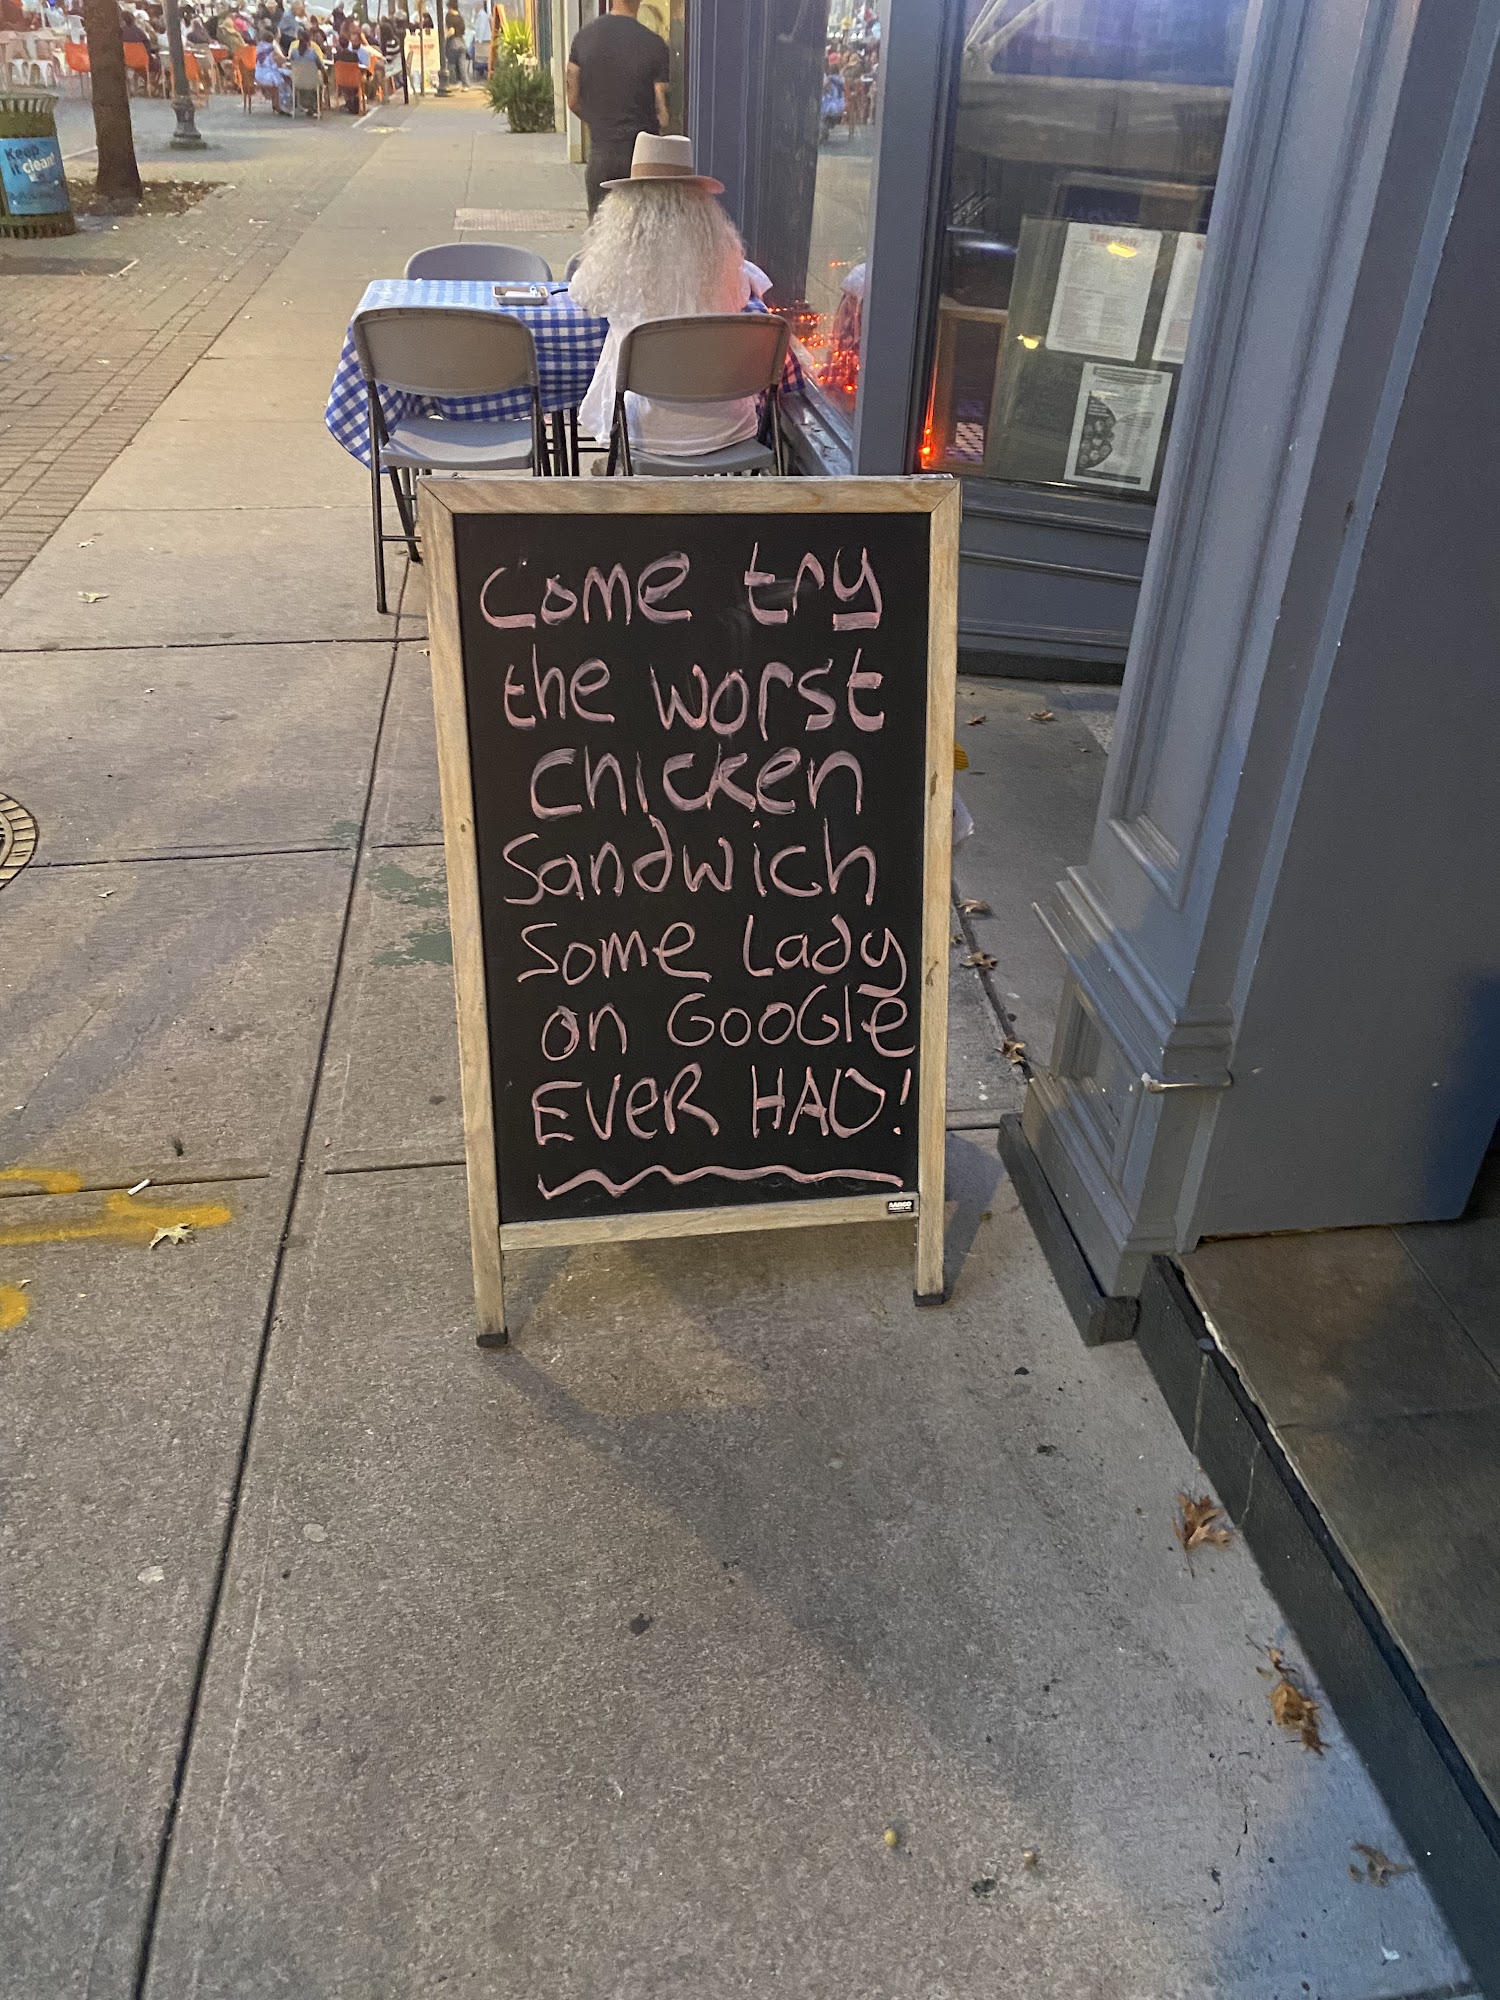 Come try
the worst
chicken
Sandwich
Some Lady
on GooGle
EVER HAD!
Keep
it clean!